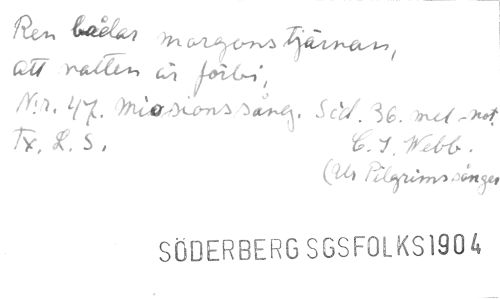 Ren bådar morgonstjärnan,
att natten är förbi,
N:r. 47. Missionssång. Sid. 36. mel-not.
Tx. L. S. C. J. Webb.
(Ur Pilgrimssånger
SÖDERBERG SGSFOLKS1904